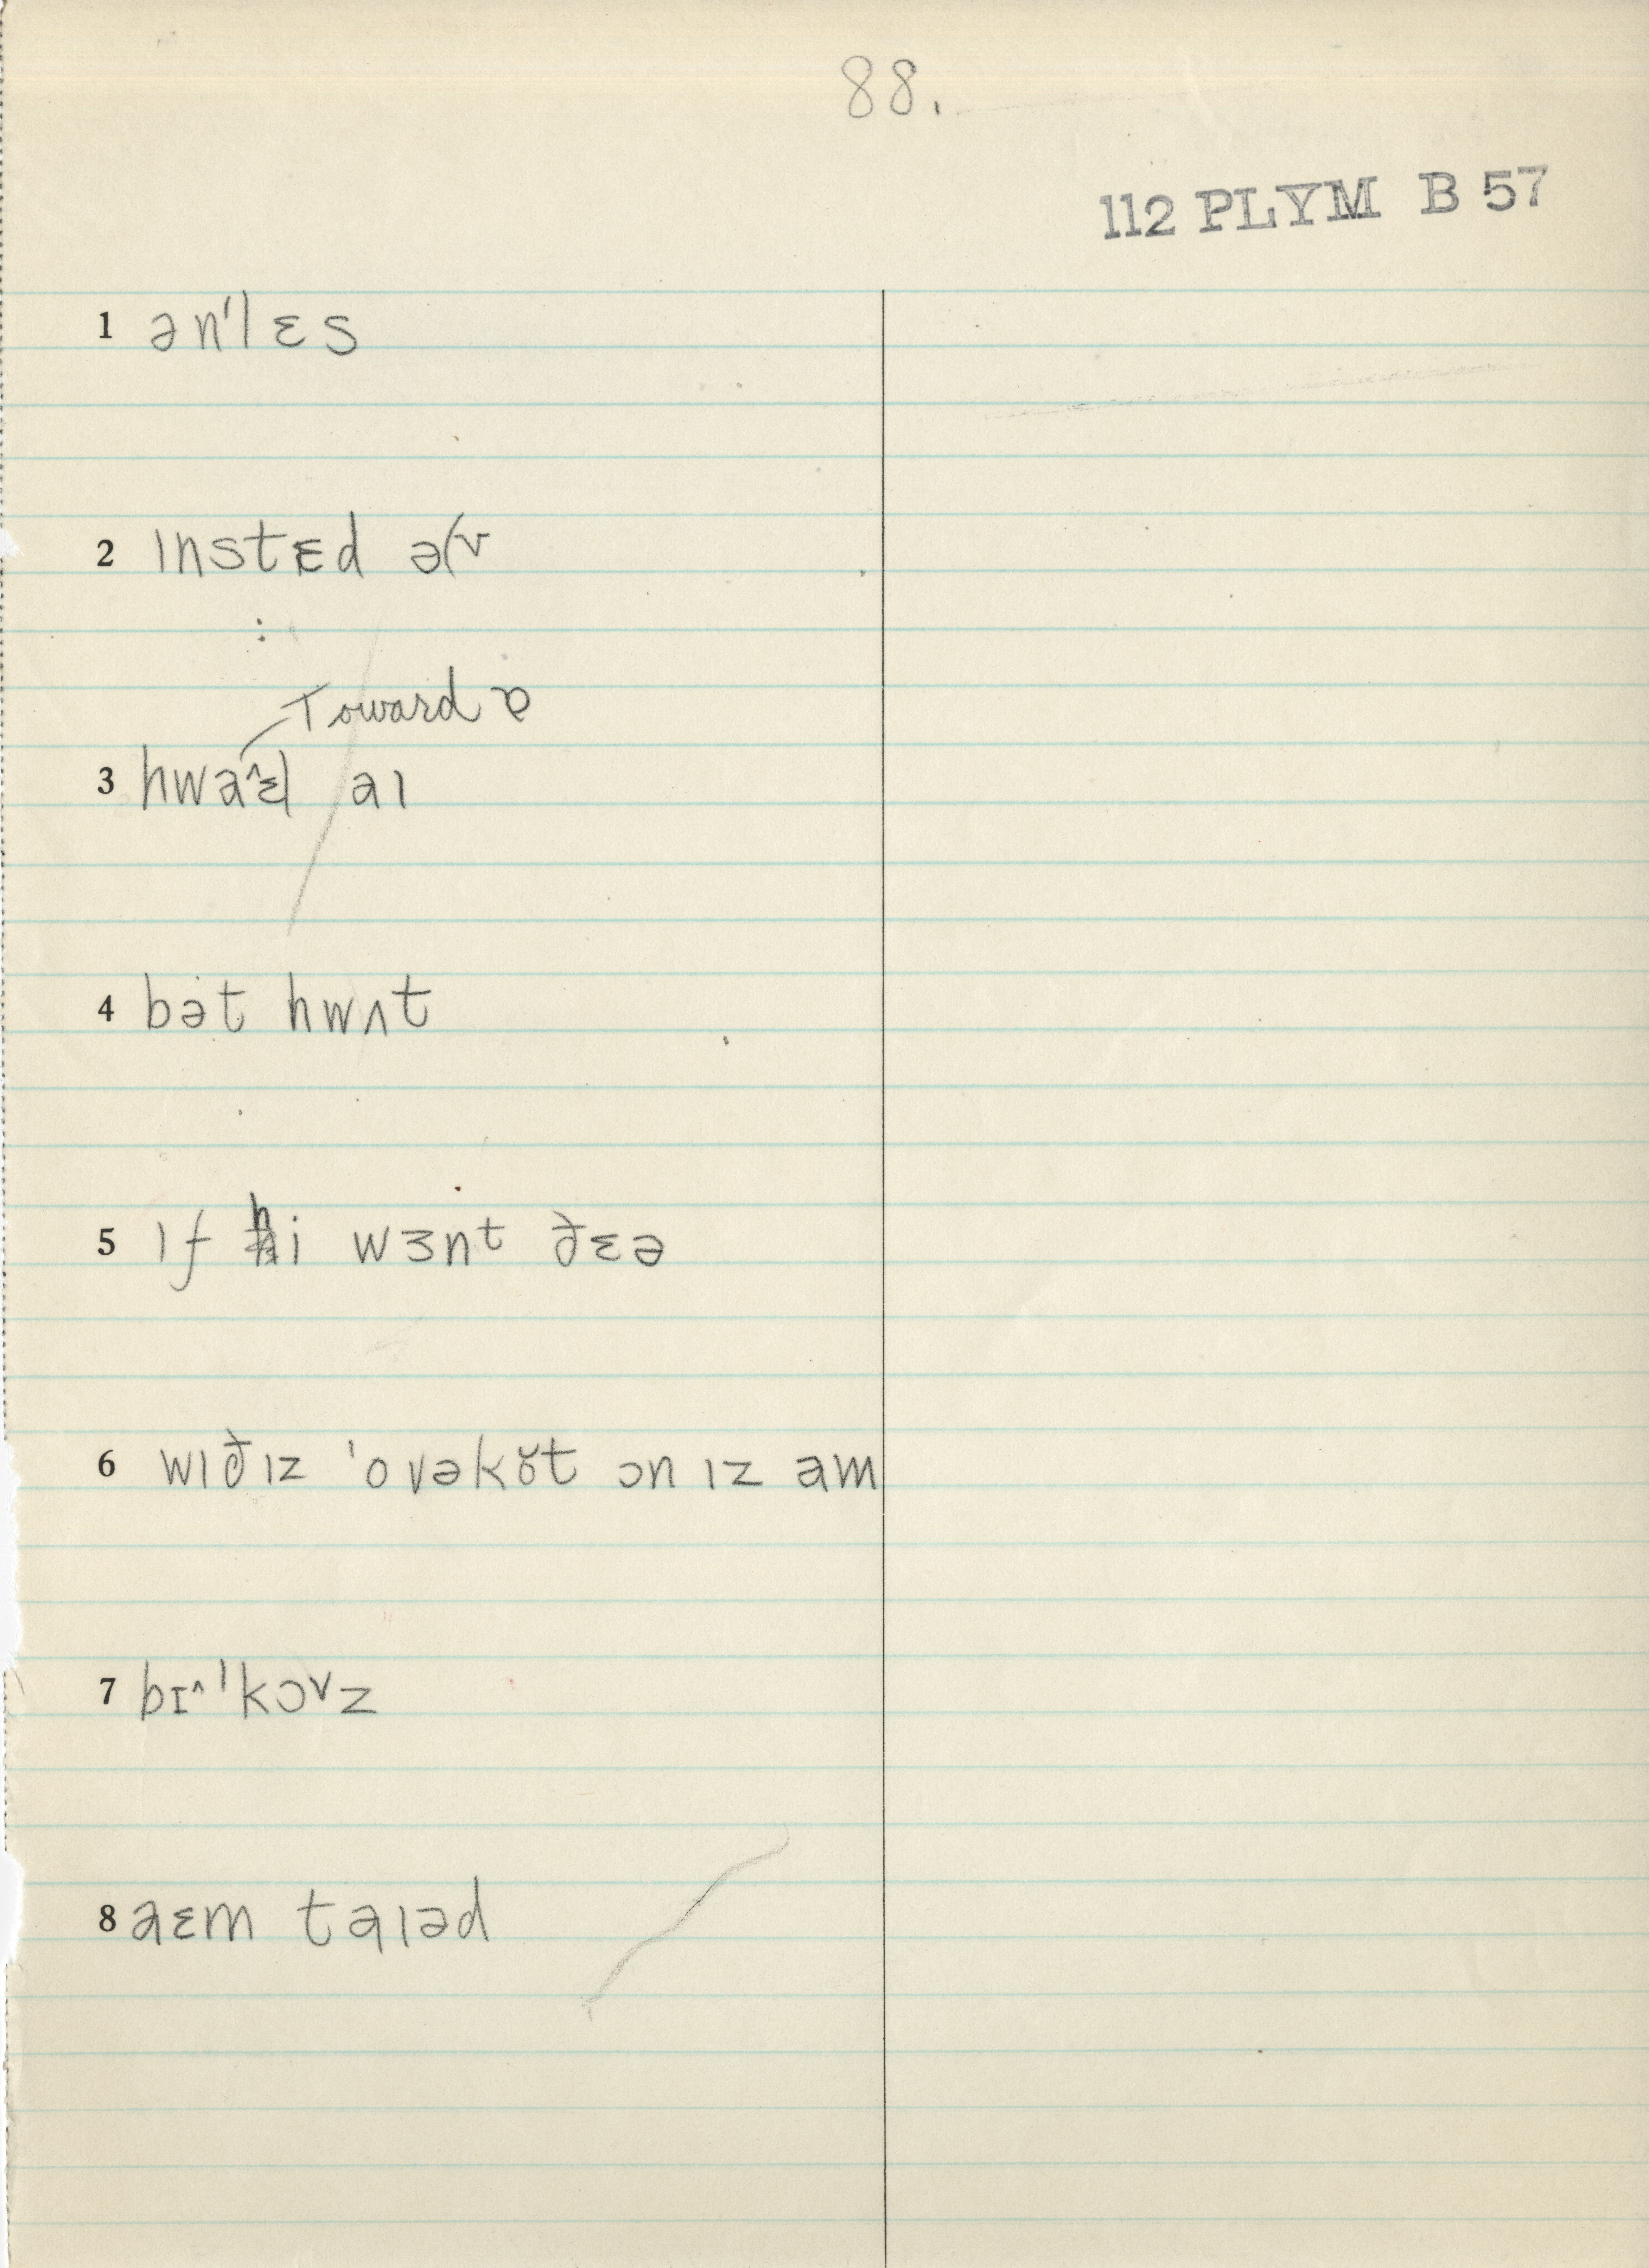 88.
112 PLYM B 57
1 ən'lɛs
2 ɪnstɛd ə(v
Toward ɒ
3 hwaɛl aɪ
4 bət hwʌt
5 ɪf hi wɜnt ðɛə
6 wɪðɪz 'ovəkɤ̆t ɔn ɪz am
7 bɪ^'kɔvz
8 aɛm taɪəd